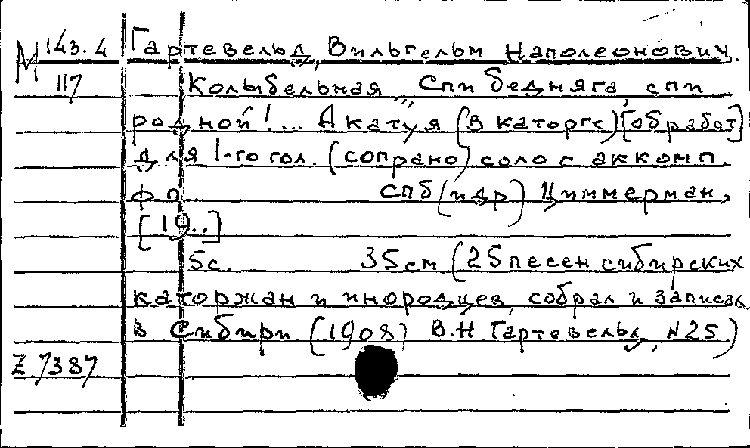 М 143.4 Гартевельд, Вильгельм Наполеонович.
117 Колыбельная „Спи бедняга, спи
родной!... Акатуя (в каторге) [обработ]
для 1-го гол. (сопрано) соло с аккомп.
фп СПб (и др) Циммерман,
[19..]
5с. 35см (25 песен сибирских
каторжан и инородцев, собрал и записал
в Сибири (1908) В.Н Гартевельд, №25)
Z 7387